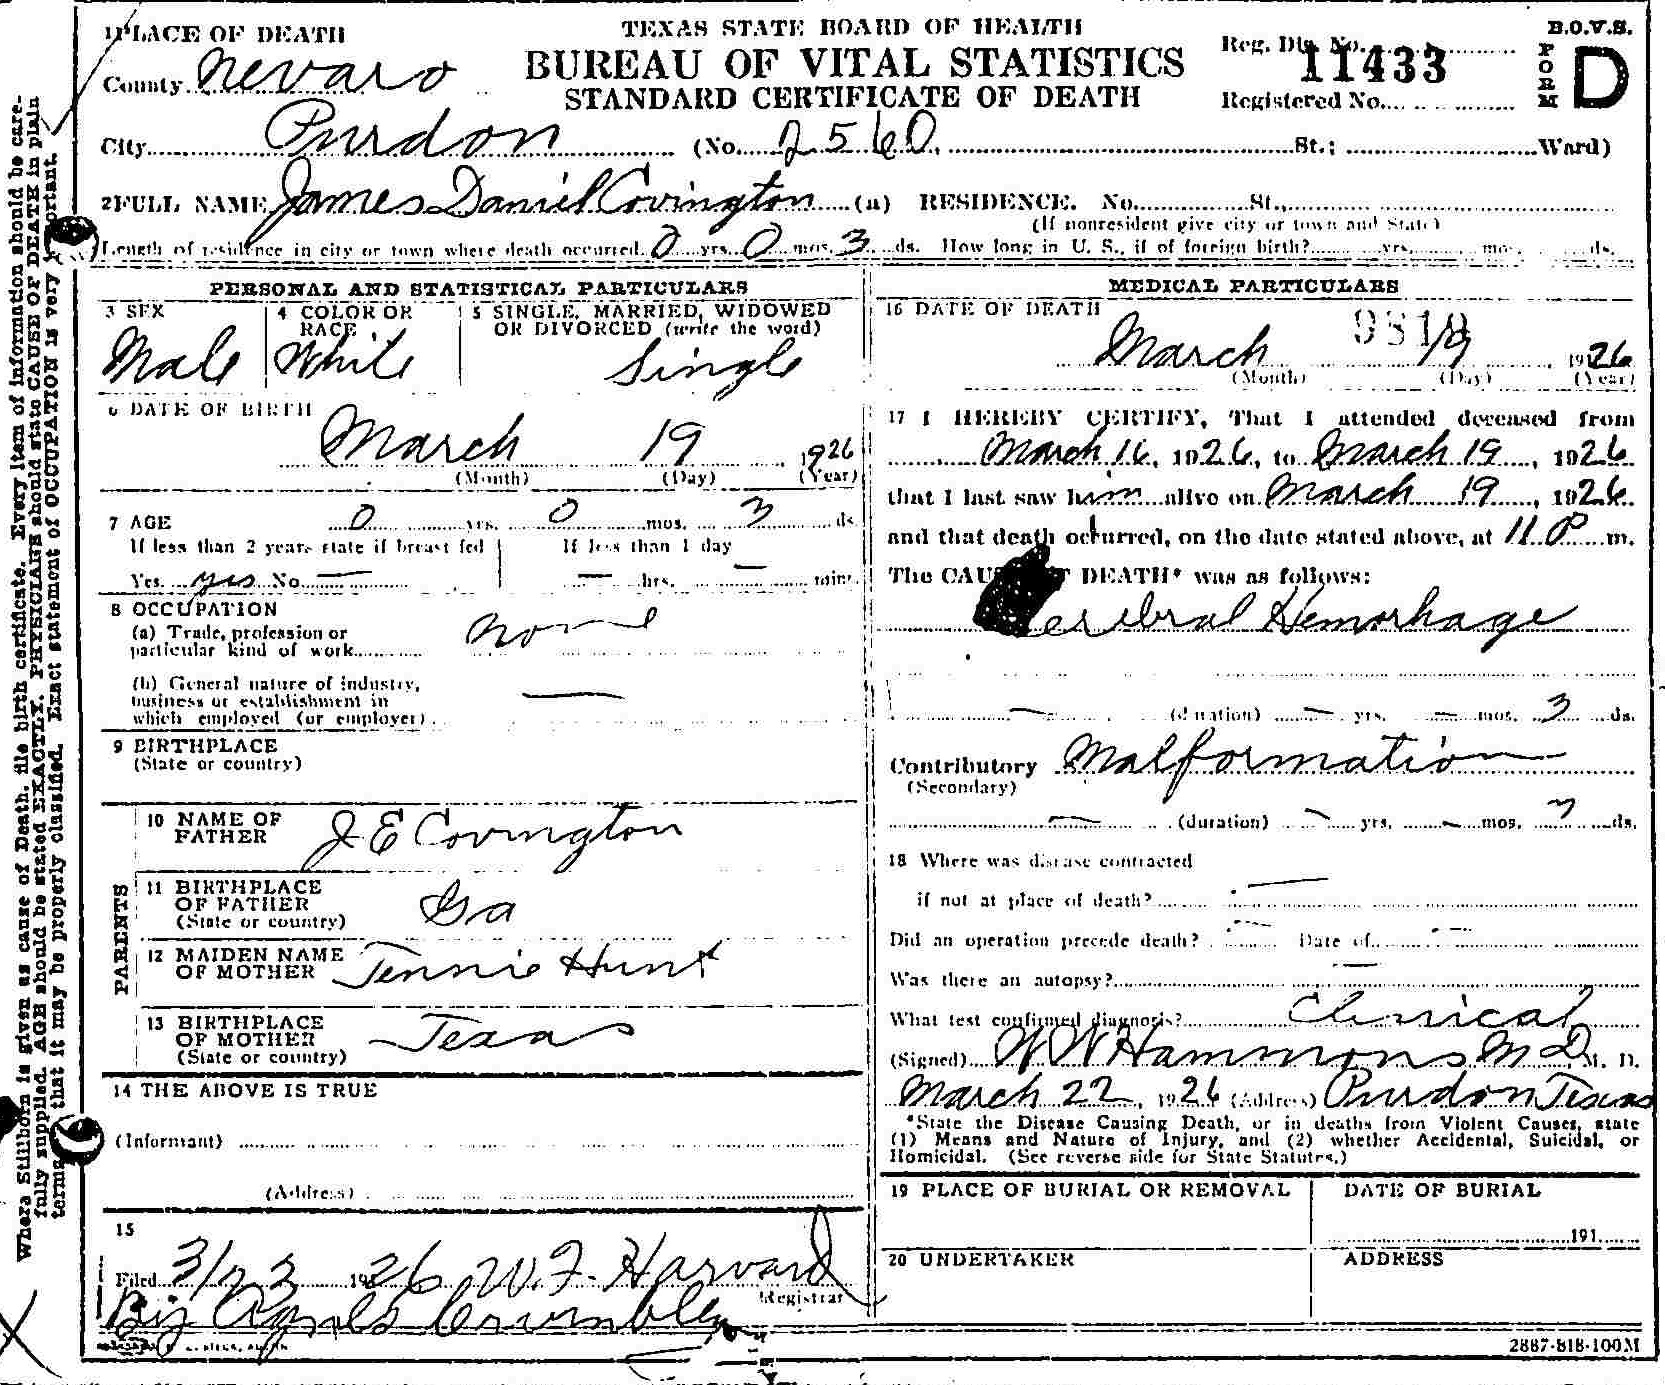 1 PLACE OF DEATH
TEXAS STATE BOARD OF HEALTH
BUREAU OF VITAL STATISTICS
STANDARD CERTIFICATE OF DEATH
Reg. Dis. No. 11433
Registered No.
B.O.V.S.
FORM D
County Nevaro
City Purdon (No. 2560, St.; Ward)
2 FULL NAME James Daniel Covington (a) RESIDENCE. No. St.,
(If nonresident give city or town and State)
Length of residence in city or town where death occurred 0 yrs. 0 mos. 3 ds. How long in U. S., if of foreign birth? yrs. mos. ds.
PERSONAL AND STATISTICAL PARTICULARS
3 SEX
Male
4 COLOR OR RACE
White
5 SINGLE, MARRIED, WIDOWED
OR DIVORCED (write the word)
Single
6 DATE OF BIRTH
March 19 1926
(Month) (Day) (Year)
7 AGE 0 yrs. 0 mos. 3 ds.
If less than 2 years state if breast fed
Yes yes No —
If less than 1 day
— hrs. — min.
8 OCCUPATION
(a) Trade, profession or
particular kind of work
none
(b) General nature of industry,
business or establishment in
which employed (or employer)
—
9 BIRTHPLACE
(State or country)
PARENTS
10 NAME OF
FATHER
J E Covington
11 BIRTHPLACE
OF FATHER
(State or country)
Ga
12 MAIDEN NAME
OF MOTHER
Jennie Hunt
13 BIRTHPLACE
OF MOTHER
(State or country)
Texas
14 THE ABOVE IS TRUE
(Informant)
(Address)
15
Filed 3/23 1926 W. F. Harvard
Registrar
By Agnes Crumbley
MEDICAL PARTICULARS
16 DATE OF DEATH
March 19 1926
(Month) (Day) (Year)
17 I HEREBY CERTIFY, That I attended deceased from
March 16, 1926, to March 19, 1926
that I last saw him alive on March 19, 1926
and that death occurred, on the date stated above, at 11 P m.
The CAUSE DEATH* was as follows:
Cerebral Hemorhage
— (duration) — yrs. — mos. 3 ds.
Contributory Malformation
(Secondary)
— (duration) — yrs. — mos. 3 ds.
18 Where was disease contracted
if not at place of death? —
Did an operation precede death? — Date of —
Was there an autopsy? —
What test confirmed diagnosis? Clenical
(Signed) W W Hammons M D, M. D.
March 22, 1926 (Address) Purdon Texas
*State the Disease Causing Death, or in deaths from Violent Causes, state
(1) Means and Nature of Injury, and (2) whether Accidental, Suicidal, or
Homicidal. (See reverse side for State Statutes.)
19 PLACE OF BURIAL OR REMOVAL
DATE OF BURIAL
191
20 UNDERTAKER
ADDRESS
2887-818-100M
Where Stillborn is given as cause of Death, file birth certificate. Every item of information should be care-
fully supplied. AGE should be stated EXACTLY. PHYSICIANS should state CAUSE OF DEATH in plain
terms, that it may be properly classified. Exact statement of OCCUPATION is very important.